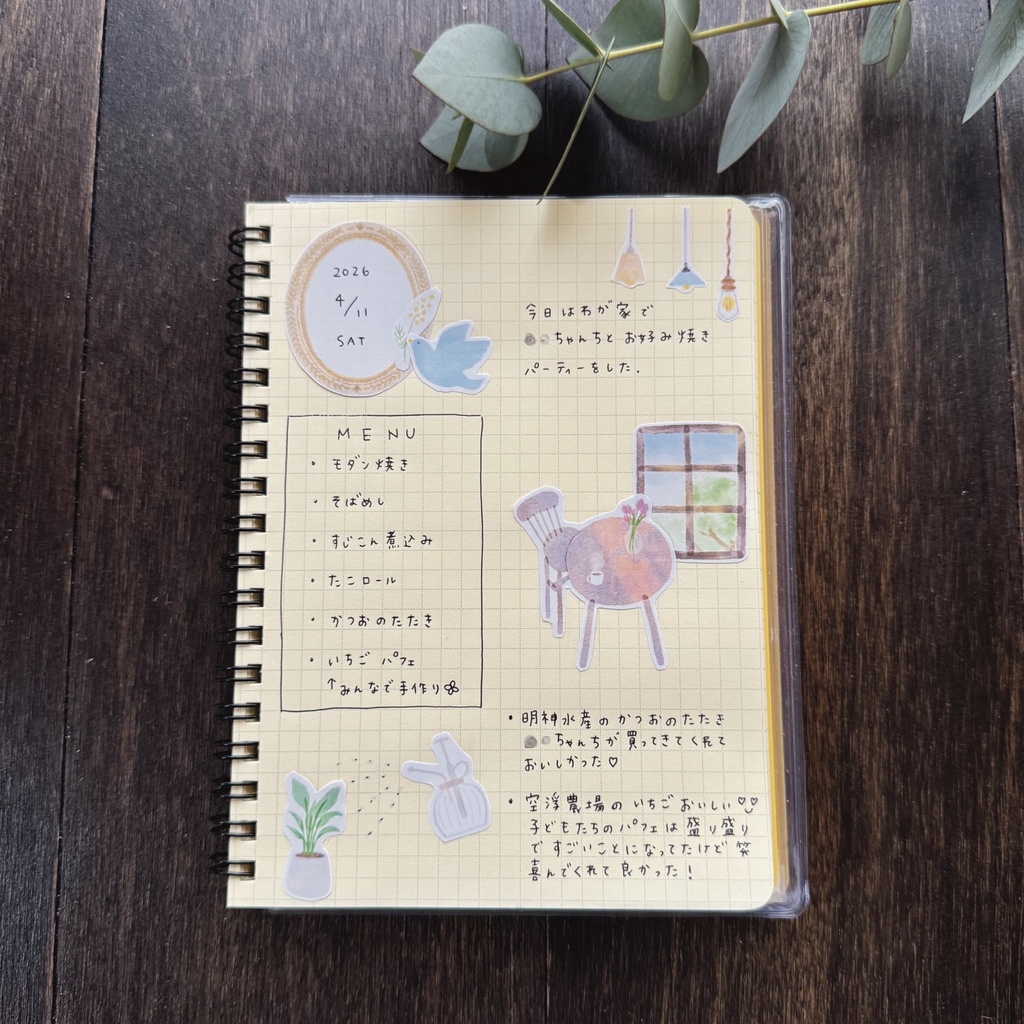 2026
4/11
SAT
MENU
・モダン焼き
・そばめし
・すじこん煮込み
・たこロール
・かつおのたたき
・いちごパフェ
↑みんなで手作り
今日はわが家で
ちゃんちとお好み焼き
パーティーをした.
・明神水産のかつおのたたき
ちゃんちが買ってきてくれて
おいしかった♡
・空浮農場のいちごおいしい♡♡
子どもたちのパフェは盛り盛り
ですごいことになってたけど笑
喜んでくれて良かった!